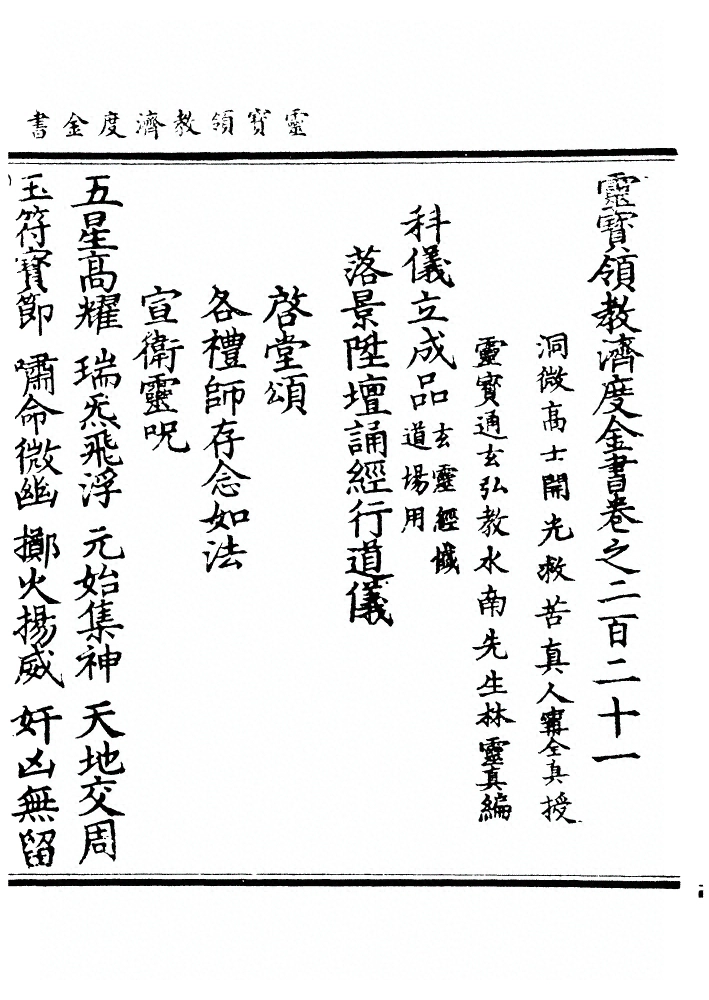 靈寶領教濟度金書
靈寶領教濟度金書卷之二百二十一
洞微高士開光救苦真人甯全真授
靈寶通玄弘教水南先生林靈真編
科儀立成品玄靈經懺道場用
落景陞壇誦經行道儀
啓堂頌
各禮師存念如法
宣衛靈呪
五星高耀 瑞炁飛浮 元始集神 天地交周
玉符寶節 嘯命微幽 擲火揚威 奸凶無留